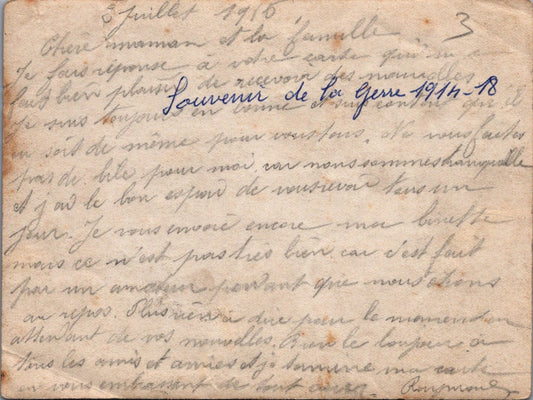 5 Juillet 1916
3
Chère maman et la famille
Je fais réponse à votre carte qui m'a
fait bien plaisir de recevoir des nouvelles
Souvenir de la Gerre 1914-18
Je suis toujours en bonne et suis content qu'il
en soit de même pour vous tous. Ne vous faites
pas de bile pour moi, car nous sommes tranquille
et j'ai le bon espoir de vous revoir tous un
jour. Je vous envoié encore ma binette
mais ce n'est pas très bien car c'est fait
par un amateur pendant que nous étions
au repos. Plus rien à dire pour le moment en
attendant de vos nouvelles. Bien le bonjour à
tous les amis et amies et je termine ma carte
en vous embrassent de tout cœur. Raymond